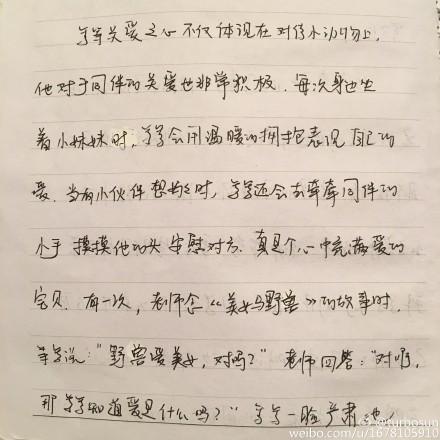 等等关爱之心不仅体现在对待小动物上,
他对于同伴的关爱也非常积极. 每次身边坐
着小妹妹时, 等等会用温暖的拥抱表现自己的
爱. 当有小伙伴想妈妈时, 等等还会去牵牵同伴的
小手 摸摸他的头 安慰对方. 真是个心中充满爱的
宝贝. 有一次, 老师 《美女与野兽》的故事时.
等等说: "野兽爱美女, 对吗?" 老师回答: "对啊,
那等等知道爱是什么吗?" 等等一脸严肃地
@turbosun
weibo.com/u/1678105910